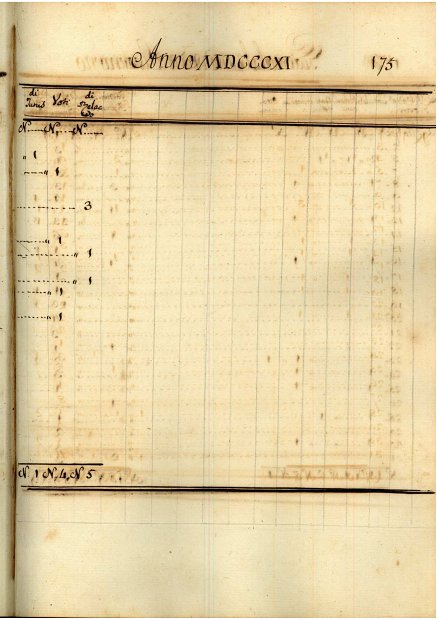 Anno MDCCCXI 175
di Tunis Voti di
N N, N
" 1
" 1
3
" 1
" 1
" 1
" 1
" 1
N 1 N, 4, N 5